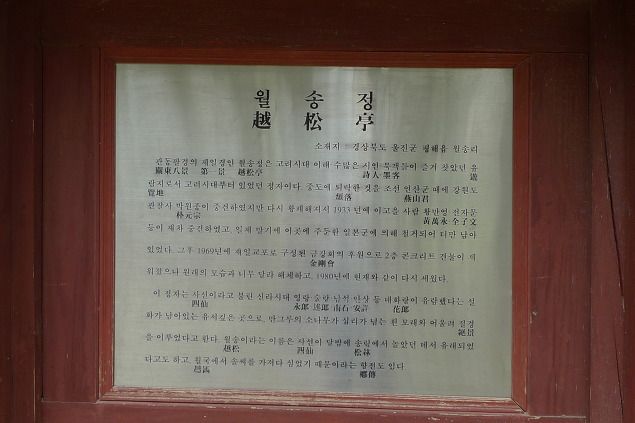 월 송 정
越 松 亭
소재지 : 경상북도 울진군 평해읍 월송리
관동팔경의 제일경인 월송정은 고려시대 이래 수많은 시인 묵객들이 즐겨 찾았던 유
關東八景 第一景 越松亭 詩人·墨客 遊
람지로서 고려시대부터 있었던 정자이다. 중도에 퇴락한 것을 조선 연산군 때에 강원도
覽地 頹落 燕山君
관찰사 박원종이 중건하였지만 다시 황폐해지서 1933년에 이고을 사람 황만영 전자문
朴元宗 黃萬永 全子文
등이 재차 중건하였고, 일제 말기에 이곳에 주둔한 일본군에 의해 철거되어 터만 남아
있었다. 그후 1969년에 재일교포로 구성된 금강회의 후원으로 2층 콘크리트 건물이 세
金剛會
워졌으나 원래의 모습과 너무 달라 해체하고, 1980년에 현재와 같이 다시 세웠다.
이 정자는 사선이라고 불린 신라시대 영랑 술랑 남석 안상 등 네화랑이 유람했다는 설
四仙 永郎 述郎 南石 安詳 花郎
화가 남아있는 유서깊은 곳으로, 만그루의 소나무가 십리가 넘는 흰 모래와 어울려 절경
絕景
을 이루었다고 한다. 월송이라는 이름은 사선이 달밤에 송림에서 놀았던 데서 유래되었
越松 四仙 松林
다고도 하고, 월국에서 솔씨를 가져다 심었기 때문이라는 향전도 있다
越國 鄕傳